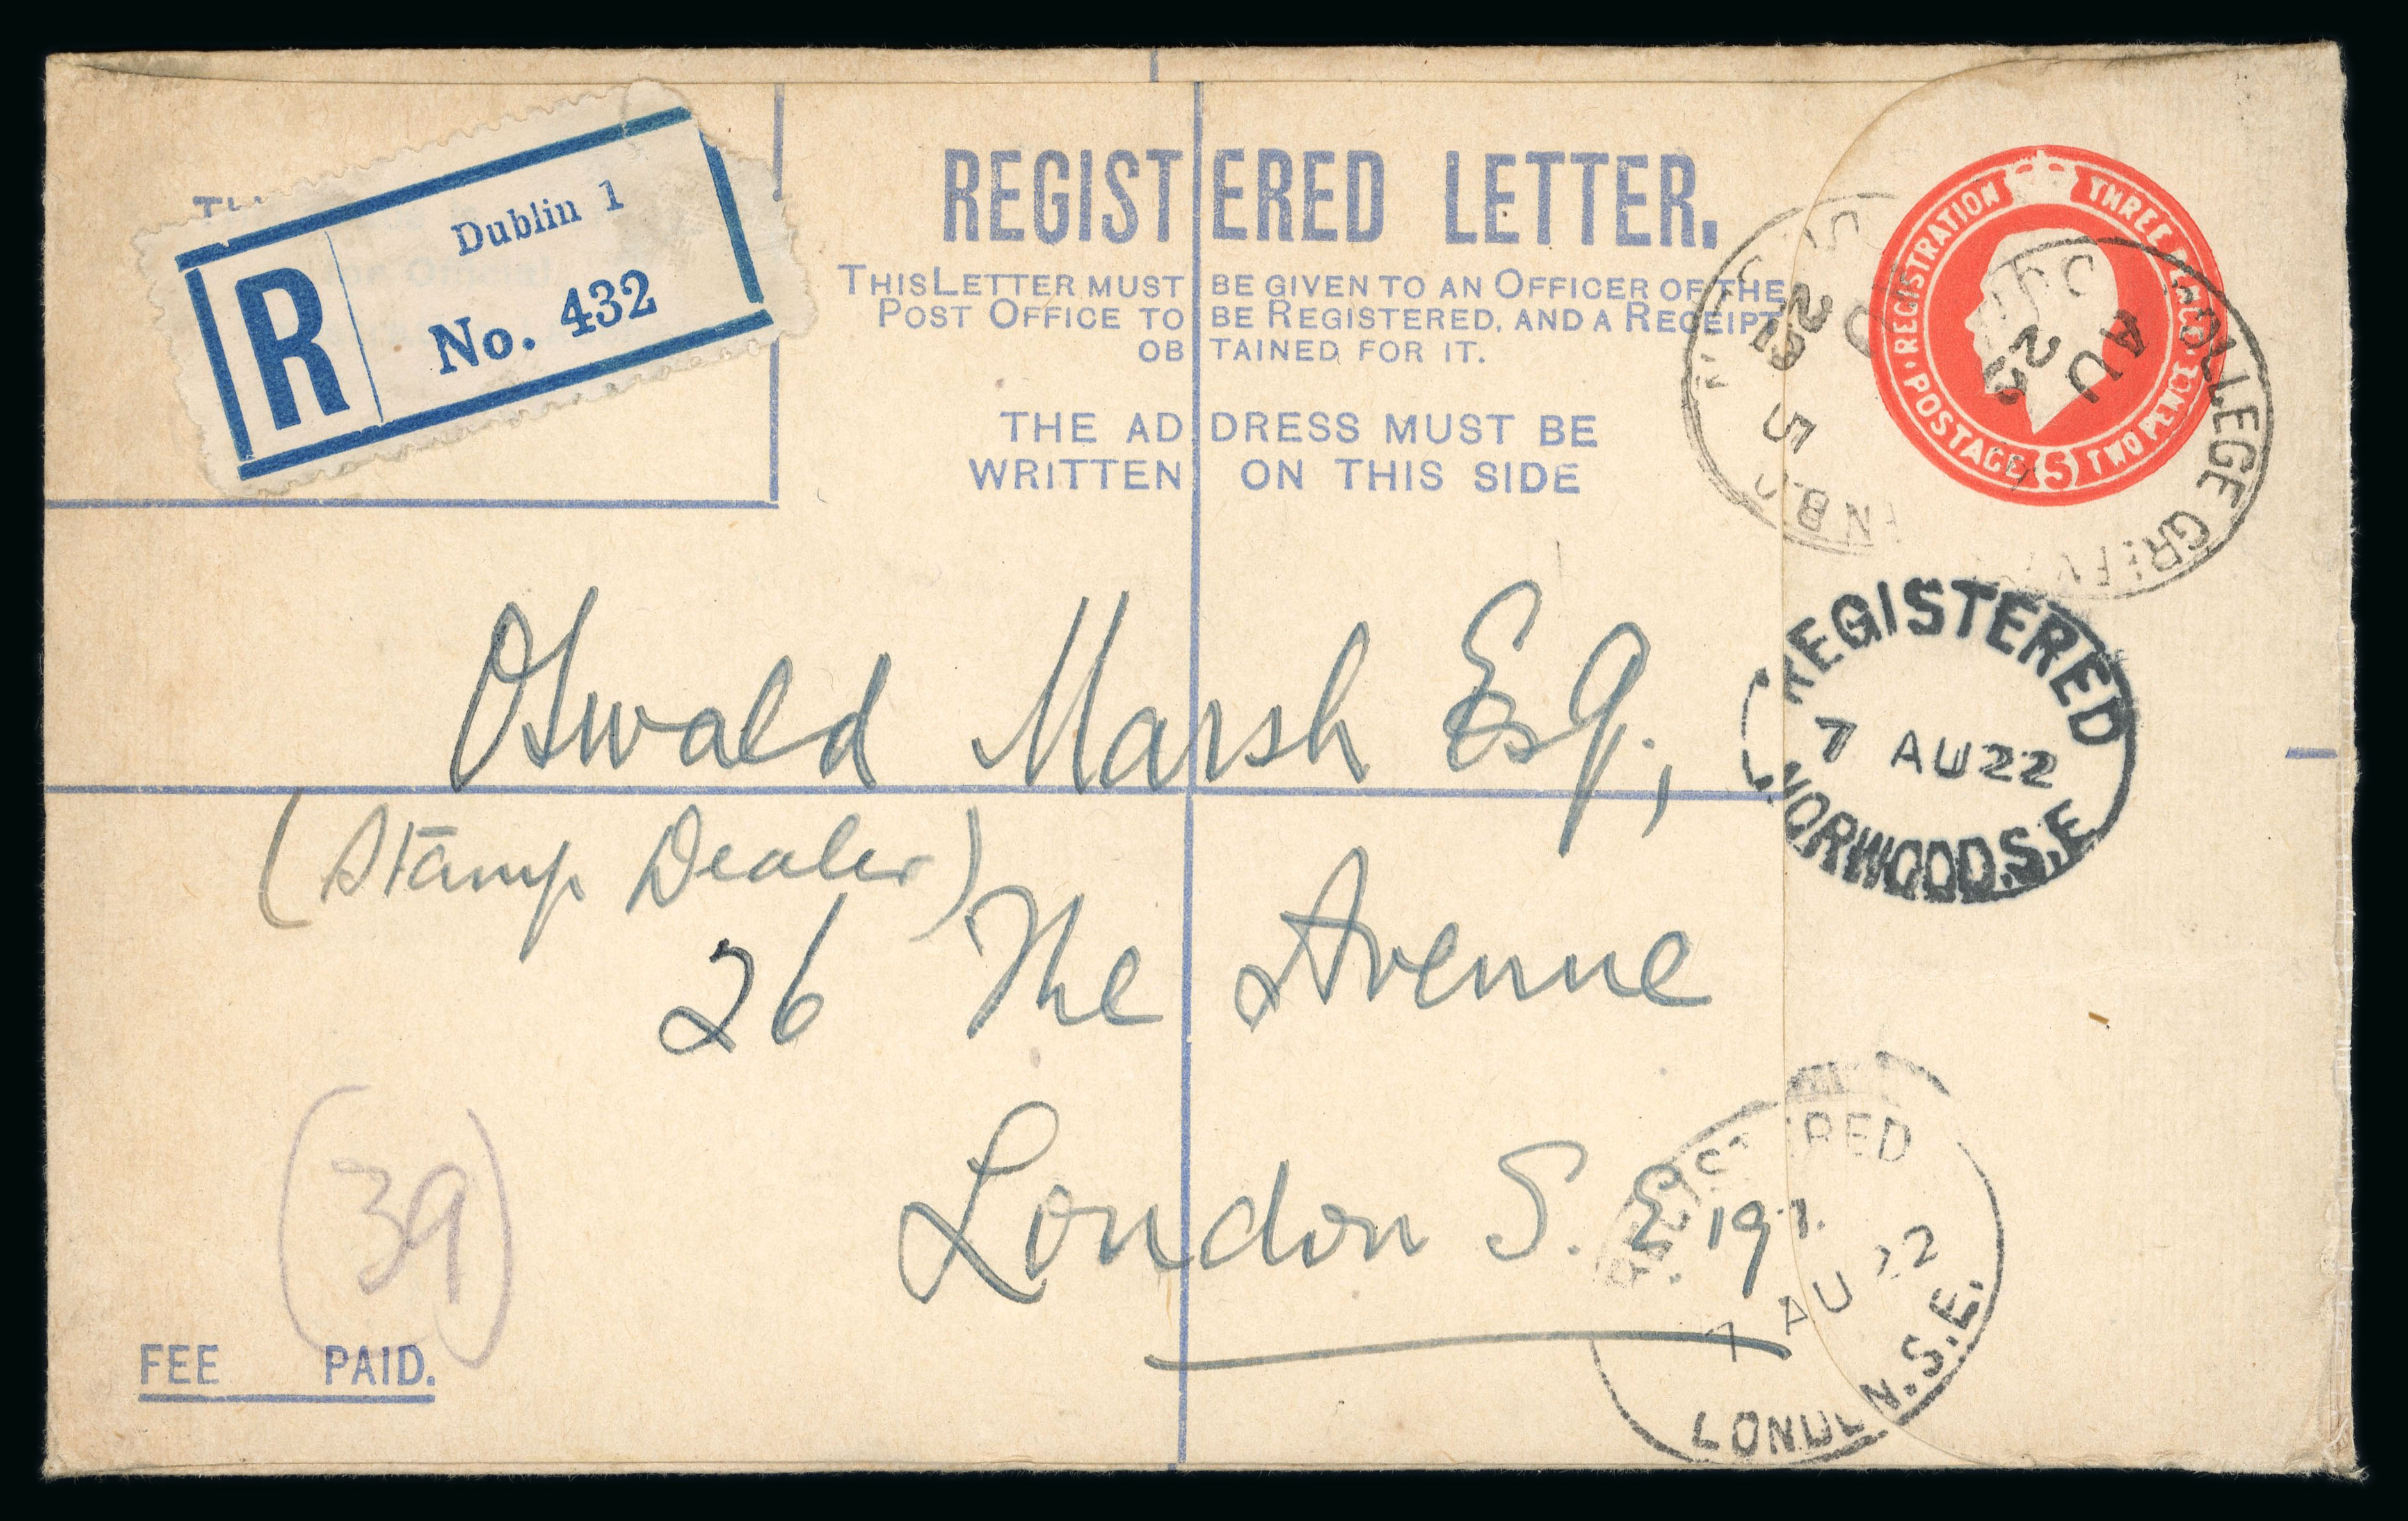 REGISTERED LETTER.
THIS LETTER MUST BE GIVEN TO AN OFFICER OF THE
POST OFFICE TO BE REGISTERED, AND A RECEIPT
OBTAINED FOR IT.
THE ADDRESS MUST BE
WRITTEN ON THIS SIDE
R
Dublin 1
No. 432
REGISTRATION THREE PENCE
POSTAGE TWO PENCE
5
COLLEGE GREEN
AU
22
5
REGISTERED
7 AU 22
NORWOOD. S.E.
Oswald Marsh Esq.,
(Stamp Dealer)
26 The Avenue
London S. E 19.
REGISTERED
7 AU 22
LONDON. S.E.
(39)
FEE PAID.